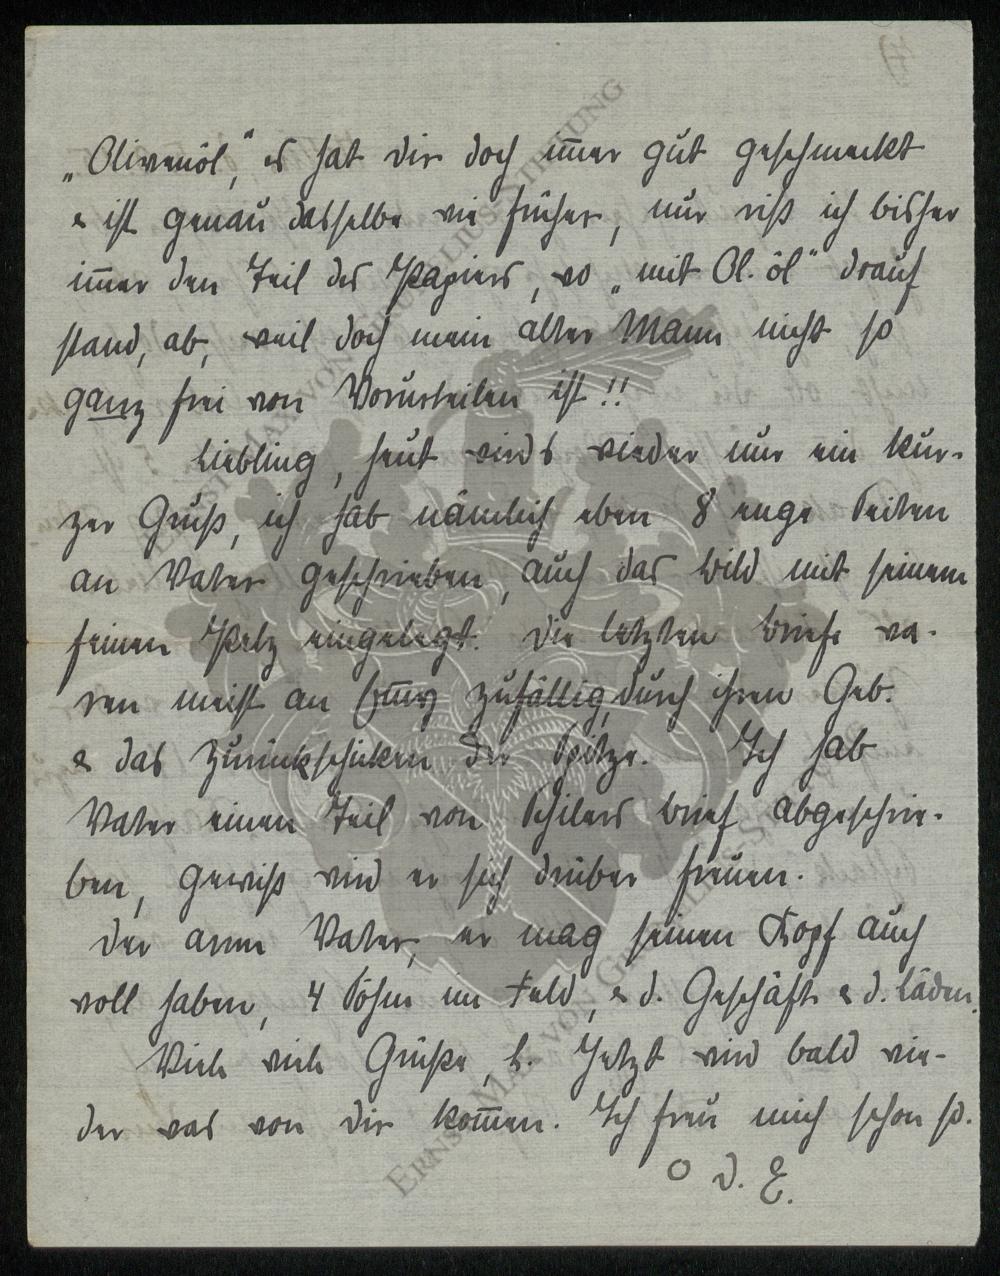 4)
„Olivenöl“, es hat dir doch im̅er gut geschmeckt
& ist genau dasselbe wie früher, nur riß ich bisher
im̅er den Teil des Papiers, wo „mit Ol. öl“ drauf
stand, ab, weil doch mein alter Mann nicht so
ganz frei von Vorurteilen ist!!
Liebling, heut wirds wieder nur ein kur-
zer Gruß, ich hab nämlich eben 8 enge Seiten
an Vater geschrieben, auch das Bild mit seinem
feinen Pelz eingelegt. Die letzten Briefe wa-
ren meist an zufällig, durch ihren Geb.
& das Zurückschicken der Spitze. Ich hab
Vater einen Teil von Schilers Brief abgeschrie-
ben, gewiß wird er sich drüber freuen.
Der arme Vater, er mag seinen Kopf auch
voll haben, 4 Söhne im Feld, & d. Geschäft & d. Läden.
Viele viele Grüße, L. Jetzt wird bald wie-
der was von dir kom̅en. Ich freu mich schon so.
O D. E.
ERNST MAX VON GRUNELIUS-STIFTUNG
ERNST MAX VON GRUNELIUS-STIFTUNG